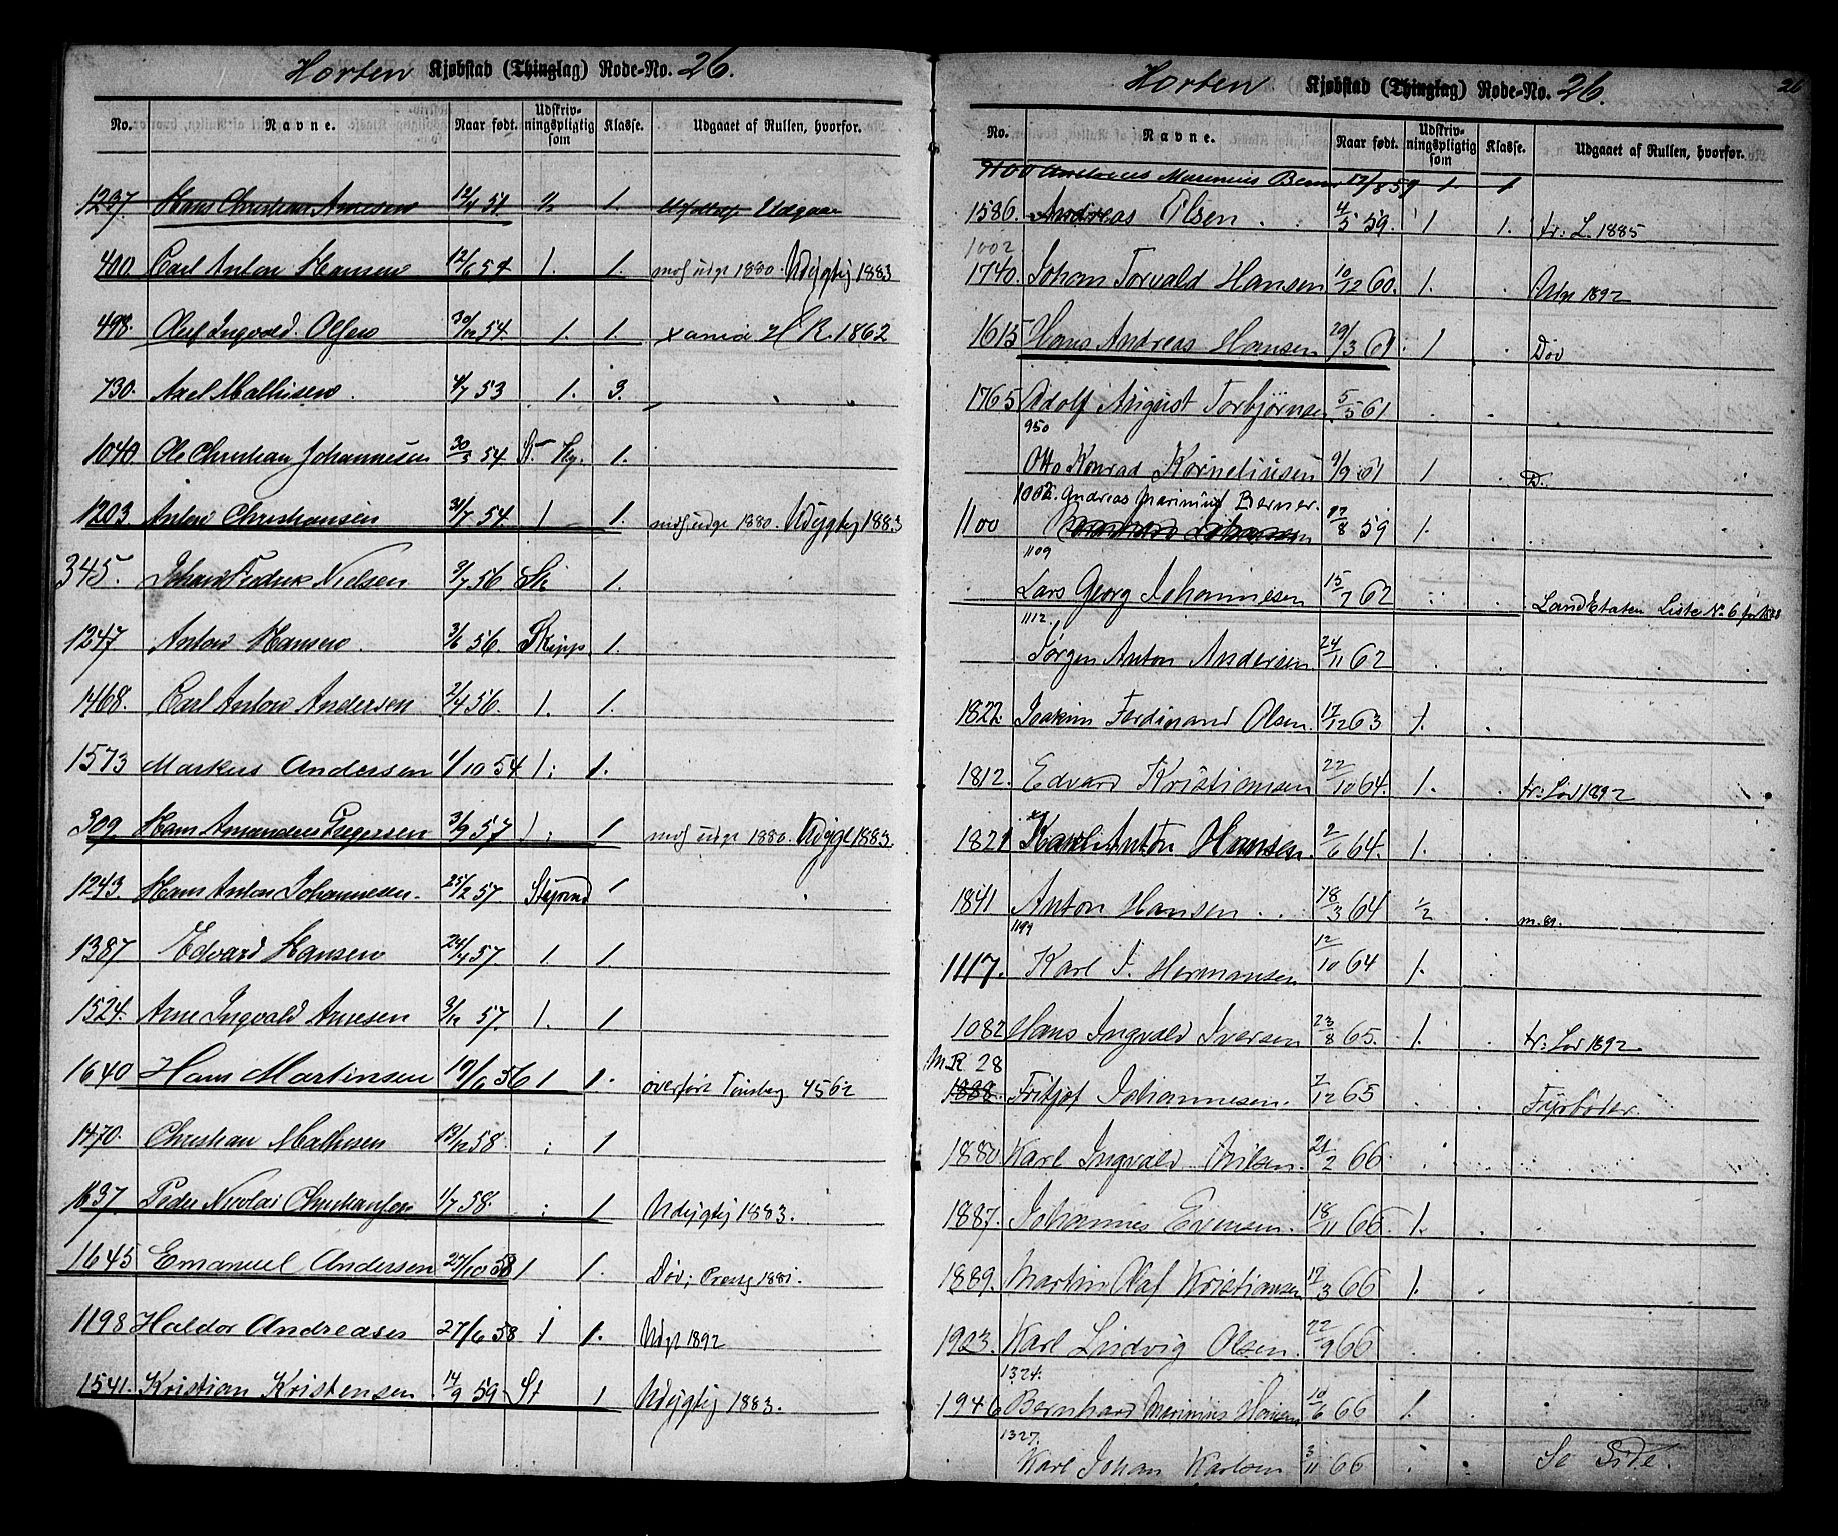 Horten Kjøbstad (Thinglag) Rode-No. 26.
No. Navne. Naar født. Udskriv-ningspligtig som Klasse. Udgaaet af Rullen, hvorfor.
1237. Hans Christian Arnesen 12/4 54 1/2 1. Udgaar
400. Carl Anton Hansen 12/6 54 1. 1. 1880. Udygtig 1883
498. Oluf Ingvald Olsen 30/12 54. 1. 1. xania H R. 1862
730. Axel Mathisen 4/7 53 1. 3.
1040. Ole Christian Johannesen 30/3 54 St. Hy. 1.
1203. Anton Christiansen 31/7 54 1 1. 1880. Udygtig 1883
345. Johan Fredrik Nielsen 9/7 56 St 1.
1247 Anton Hansen 3/6 56. Skipp. 1.
1468. Carl Anton Andersen 2/4 56. 1. 1.
1573 Markus Andersen 1/10 54 1. 1.
309 Hans Amandus Pedersen 3/9 57 1. 1 1880. Udygt 1883.
1243. Hans Anton Johannesen. 25/2 57 Styrmd 1
1387 Edvard Hansen 24/4 57. 1. 1.
1524. Arne Ingvald Arnesen 9/12 57. 1. 1
1640 Hans Martinsen 19/6 56 1 1. overført Tønsberg 4562
1470. Christian Mathisen 13/12 58. 1
1637 Peder Nicolai Christiansen 1/7 58. 1 Udygtig 1883.
1645 Emanuel Andersen 27/10 58 1 1. Død; 1881.
1198 Haldor Andreasen 27/6 58 1 1. Udgt 1892
1541. Kristian Kristensen 14/9 59 St 1 Udygtig 1883.
Horten Kjøbstad (Thinglag) Rode-No. 26. 26
No. Navne. Naar født. Udskriv-ningspligtig som Klasse. Udgaaet af Rullen, hvorfor.
1100 Andreas Marinius Berner 17/8 59 1 1
1586. Andreas Olsen 4/5 59. 1 1. tr: L. 1885
1002
1740. Johan Torvald Hansen 10/12 60. 1. Udg 1892
1615 Hans Andreas Hansen 29/3 61. 1 Død
1765 Adolf August Torbjørnsen 5/5 61
950
Otto Konrad Korneliusen 9/9 61 1 D.
1002. Andreas Marinius Berner.
1100 17/8 59 1.
1109
Lars Georg Johannesen 15/7 62 Landetaten Liste No 6
1112.
Jørgen Anton Andersen 24/11 62
1822 Joakim Ferdinand Olsen. 17/12 63 1.
1812. Edvard Kristiansen 22/10 64. 1. tr: Lod 1892
1821 Karl Anton Hansen. 2/6 64. 1.
1841 Anton Hansen 18/3 64 1/2
1199
1117. Karl J. Hermansen 12/10 64 1.
1082 Hans Ingvald Iversen 23/8 65. 1. tr: Lod 1892
M.R 28
1888. Fritjof Johannesen. 7/12 65 Fyrbøder.
1880 Karl Ingvald Nilsen. 21/2 66
1887. Johannes Evensen. 18/11 66 1.
1889. Martin Olaf Kristiansen 17/3 66 1.
1923. Karl Ludvig Olsen. 22/9 66
1324.
1946 Bernhard Marinius Hansen 10/6 66 1.
1327.
Karl Johan Karlsen 3/11 66 Se Side.